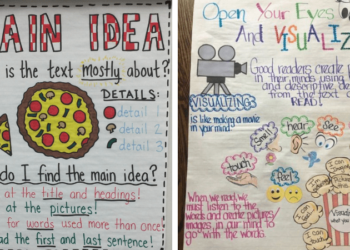 MAIN IDEA
is the text mostly about?
DETAILS:
detail 1
detail 2
detail 3
do I find the main idea?
at the title and headings!
at the pictures!
for words used more than once
the first and last sentence!
Open Your Eyes
And VISUALIZ
Good readers create
in their minds using
and descriptive de
from the text
READ!
VISUALIZING
is like making a movie
in your mind.
Smell
hear
see
touch
feel
When we read, we
must listen to the
words and create pictures/
images in our mind to
go with the words.